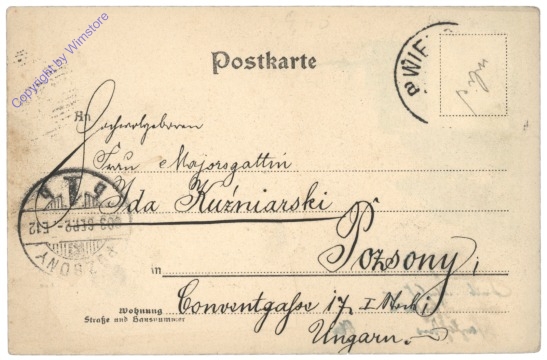 Copyright by Wimstore
Postkarte
An Hochwolgeboren
Frau Majorsgattin
Ida Kuźniarski
in Pozsony,
Wohnung
Straße und Hausnummer
Conventgasse 17. I
Ungarn.
WIE
POZSONY
903 SEP. 2